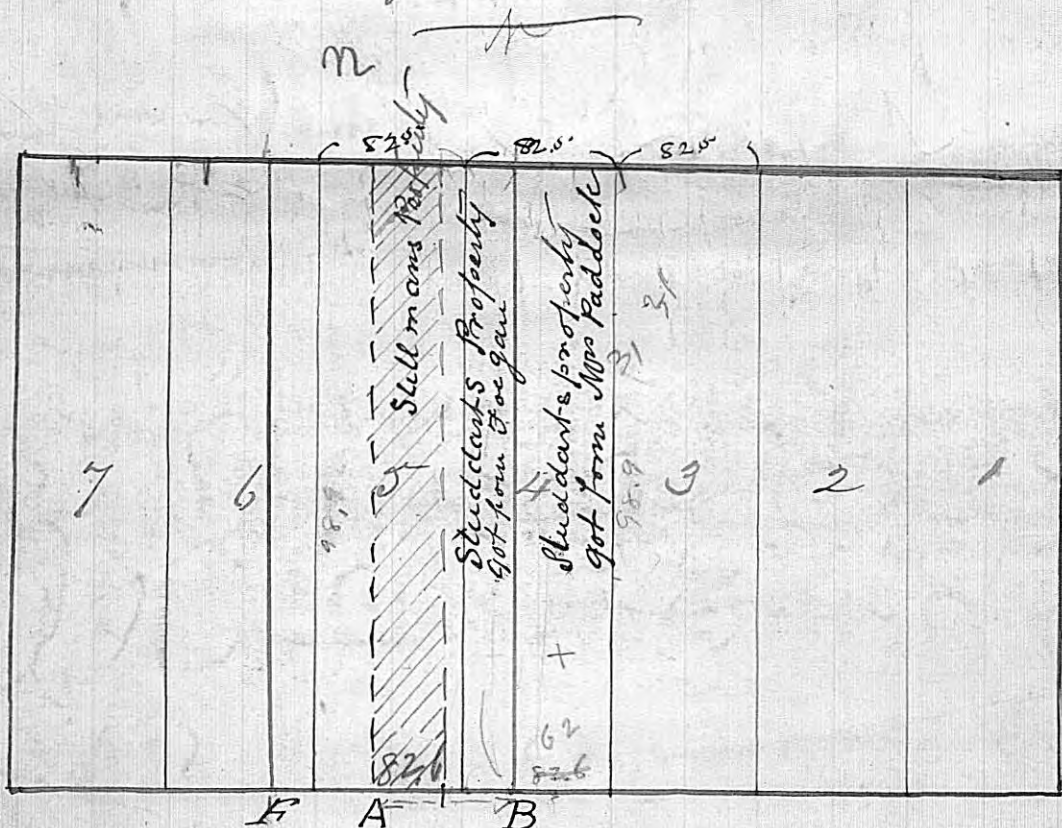 N
82.5
82.5
82.5
Stillmans Property
Studdarts Property
got from Joe Gau
Studdarts property
got from Mrs Paddock
31
31
7
6
5
4
3
2
1
98.9
98.9
82.6
+
62
82.6
F
A
B